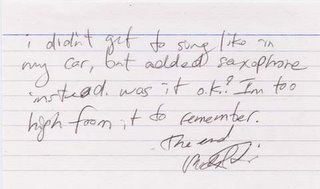 i didn't get to sing like in
my car, but added saxophone
instead. was it o.k.? I'm too
high from it to remember.
The end